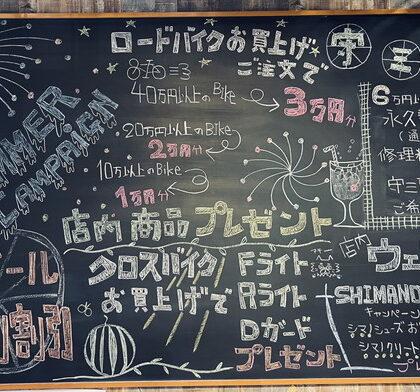 ロードバイクお買上げ
ご注文で
40万円以上のBike
3万円分
20万円以上のBike
2万円分
10万円以上のBike
1万円分
店内商品プレゼント
SUMMER
CAMPAIGN
クロスバイク
お買上げで
Fライト
Rライト
Dガード
プレゼント
6万円
永久
修理
守三
ご希
店内
ウェ
SHIMANO
キャンペーン
シマノシューズお
シマノクリート
プ
ール
割引